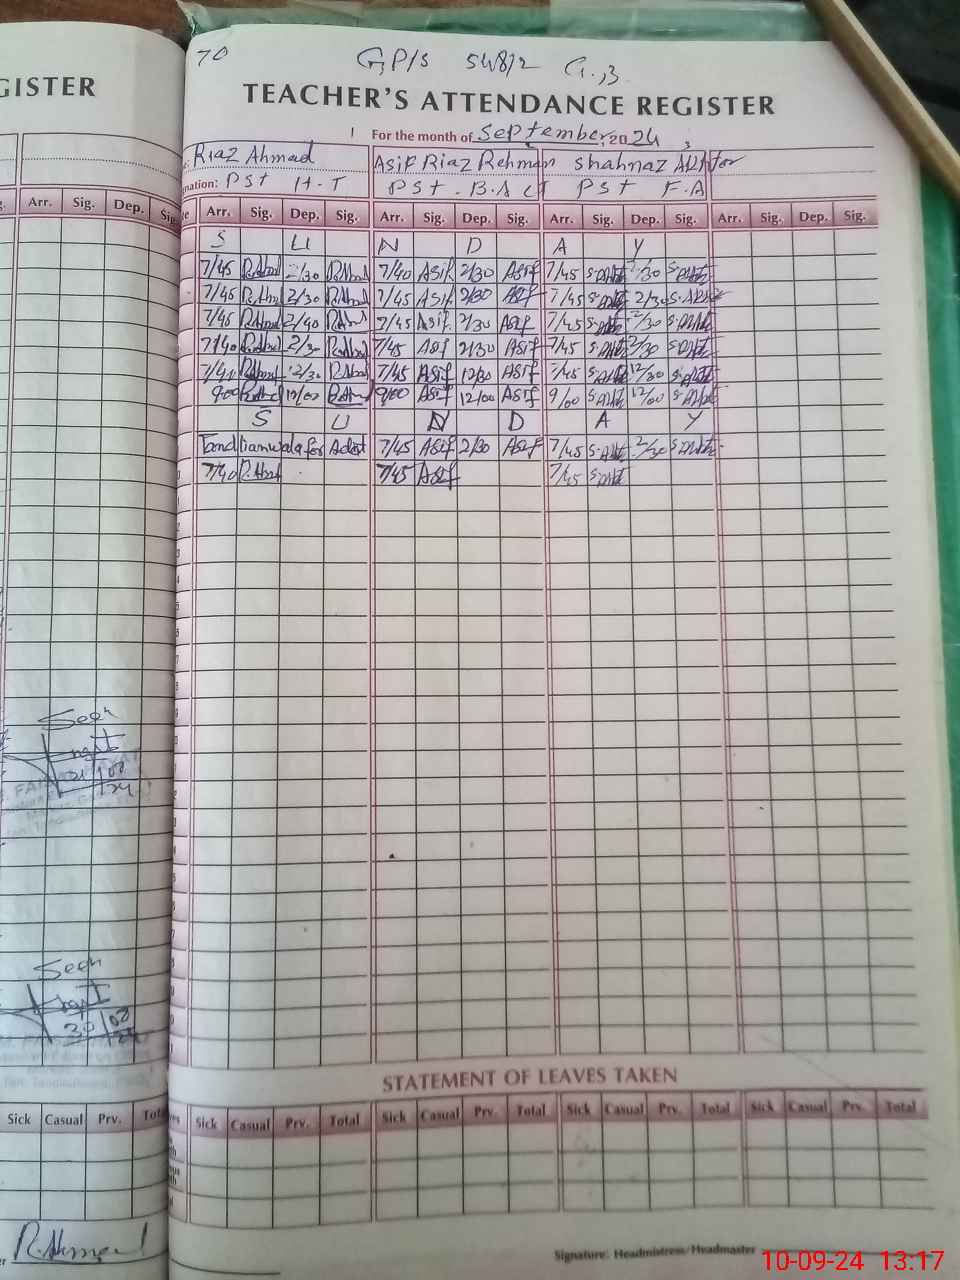 GISTER
Arr. Sig. Dep. Sig.
Seen
Seen
Sick Casual Prv. Total
R.Ahmad
70
G,P/S 548/2 G.,B.
TEACHER'S ATTENDANCE REGISTER
For the month of September, 2024
Riaz Ahmad Asif Riaz Rehman Shahnaz Akhtar
nation: PST H.T PST . B.A CT PST F.A
Arr. Sig. Dep. Sig. Arr. Sig. Dep. Sig. Arr. Sig. Dep. Sig. Arr. Sig. Dep. Sig.
S U N D A Y
7/45 R.Ahmad 2/30 R.Ahmad 7/40 Asif 2/30 Asif 7/45 2/30
7/45 R.Ahmad 2/30 R.Ahmad 7/45 Asif 2/30 Asif 7/45 2/30
7/45 R.Ahmad 2/40 R.Ahmad 7/45 Asif 2/30 Asif 7/45 2/30
7/40 R.Ahmad 2/30 R.Ahmad 7/45 Asif 2/30 Asif 7/45 2/30
R.Ahmad 12/30 R.Ahmad 7/45 Asif 12/30 Asif 7/45 12/30
9/00 R.Ahmad 12/00 R.Ahmad 9/00 Asif 12/00 Asif 9/00 12/00
S U N D A Y
Tandlianwala for 7/45 Asif 2/30 Asif 7/45 2/30
7/40 R.Ahmad 7/45 Asif 7/45
STATEMENT OF LEAVES TAKEN
Sick Casual Prv. Total Sick Casual Prv. Total Sick Casual Prv. Total Sick Casual Prv. Total
Signature: Headmistress/Headmaster
10-09-24 13:17